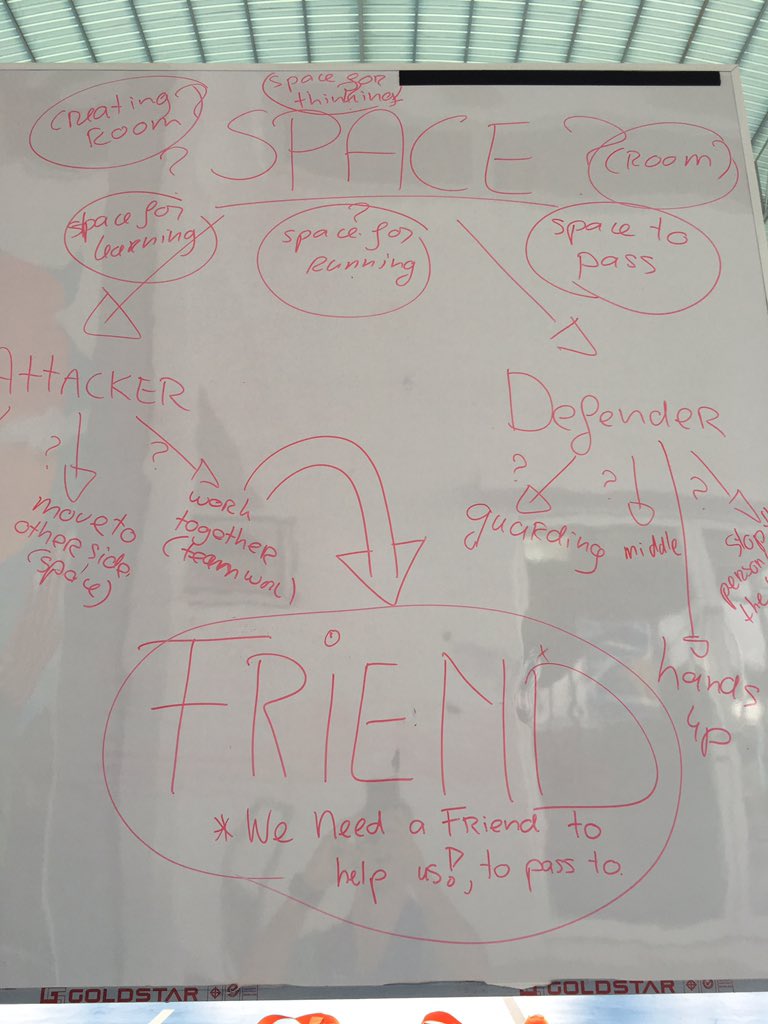 creating
room
?
space for
thinking
SPACE?
(ROOM)
space for
learning
?
space for
running
space to
pass
ATTACKER
Defender
?
?
move to
other side
(space)
work
togother
?
?
?
guarding
middle
stop
person
the
hands
up
FRiEND
* We need a Friend to
help us!, to pass to.
GOLDSTAR
GOLDSTAR